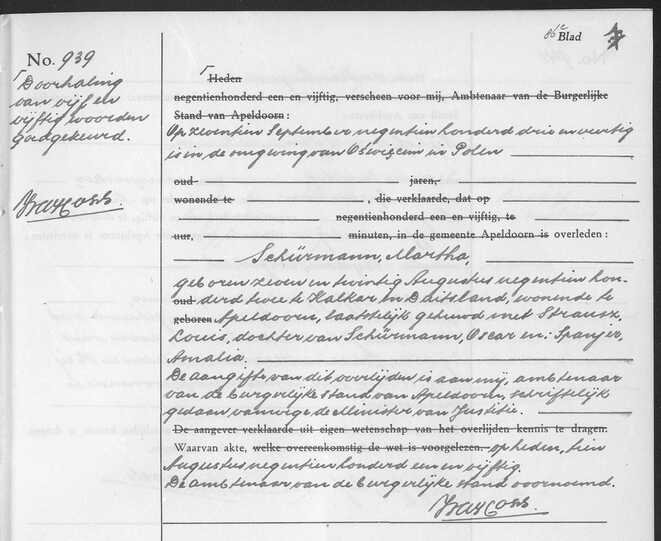 Blad
No. 939
Doorhaling
van vijf en
vijftig woorden
goedgekeurd.
Heden
negentienhonderd een en vijftig, verscheen voor mij, Ambtenaar van de Burgerlijke
Stand van Apeldoorn:
Op zeventien September negentien honderd drie en veertig
is in de omgeving van Oświęcim in Polen
oud jaren,
wonende te , die verklaarde, dat op
negentienhonderd een en vijftig, te
uur, minuten, in de gemeente Apeldoorn is overleden:
Schürmann, Martha,
geboren zeven en twintig Augustus negentien hon-
oud derd twee te Kalkar in Duitsland, wonende te
geboren Apeldoorn, laatstelijk gehuwd met Strausz,
Louis, dochter van Schürmann, Oscar en: Spanjer,
Amalia.
De aangifte van dit overlijden is aan mij, ambtenaar
van de burgerlijke stand van Apeldoorn, schriftelijk
gedaan vanwege de Minister van Justitie.
De aangever verklaarde uit eigen wetenschap van het overlijden kennis te dragen.
Waarvan akte, welke overeenkomstig de wet is voorgelezen. op heden, tien
Augustus negentien honderd een en vijftig.
De ambtenaar van de burgerlijke stand voornoemd.